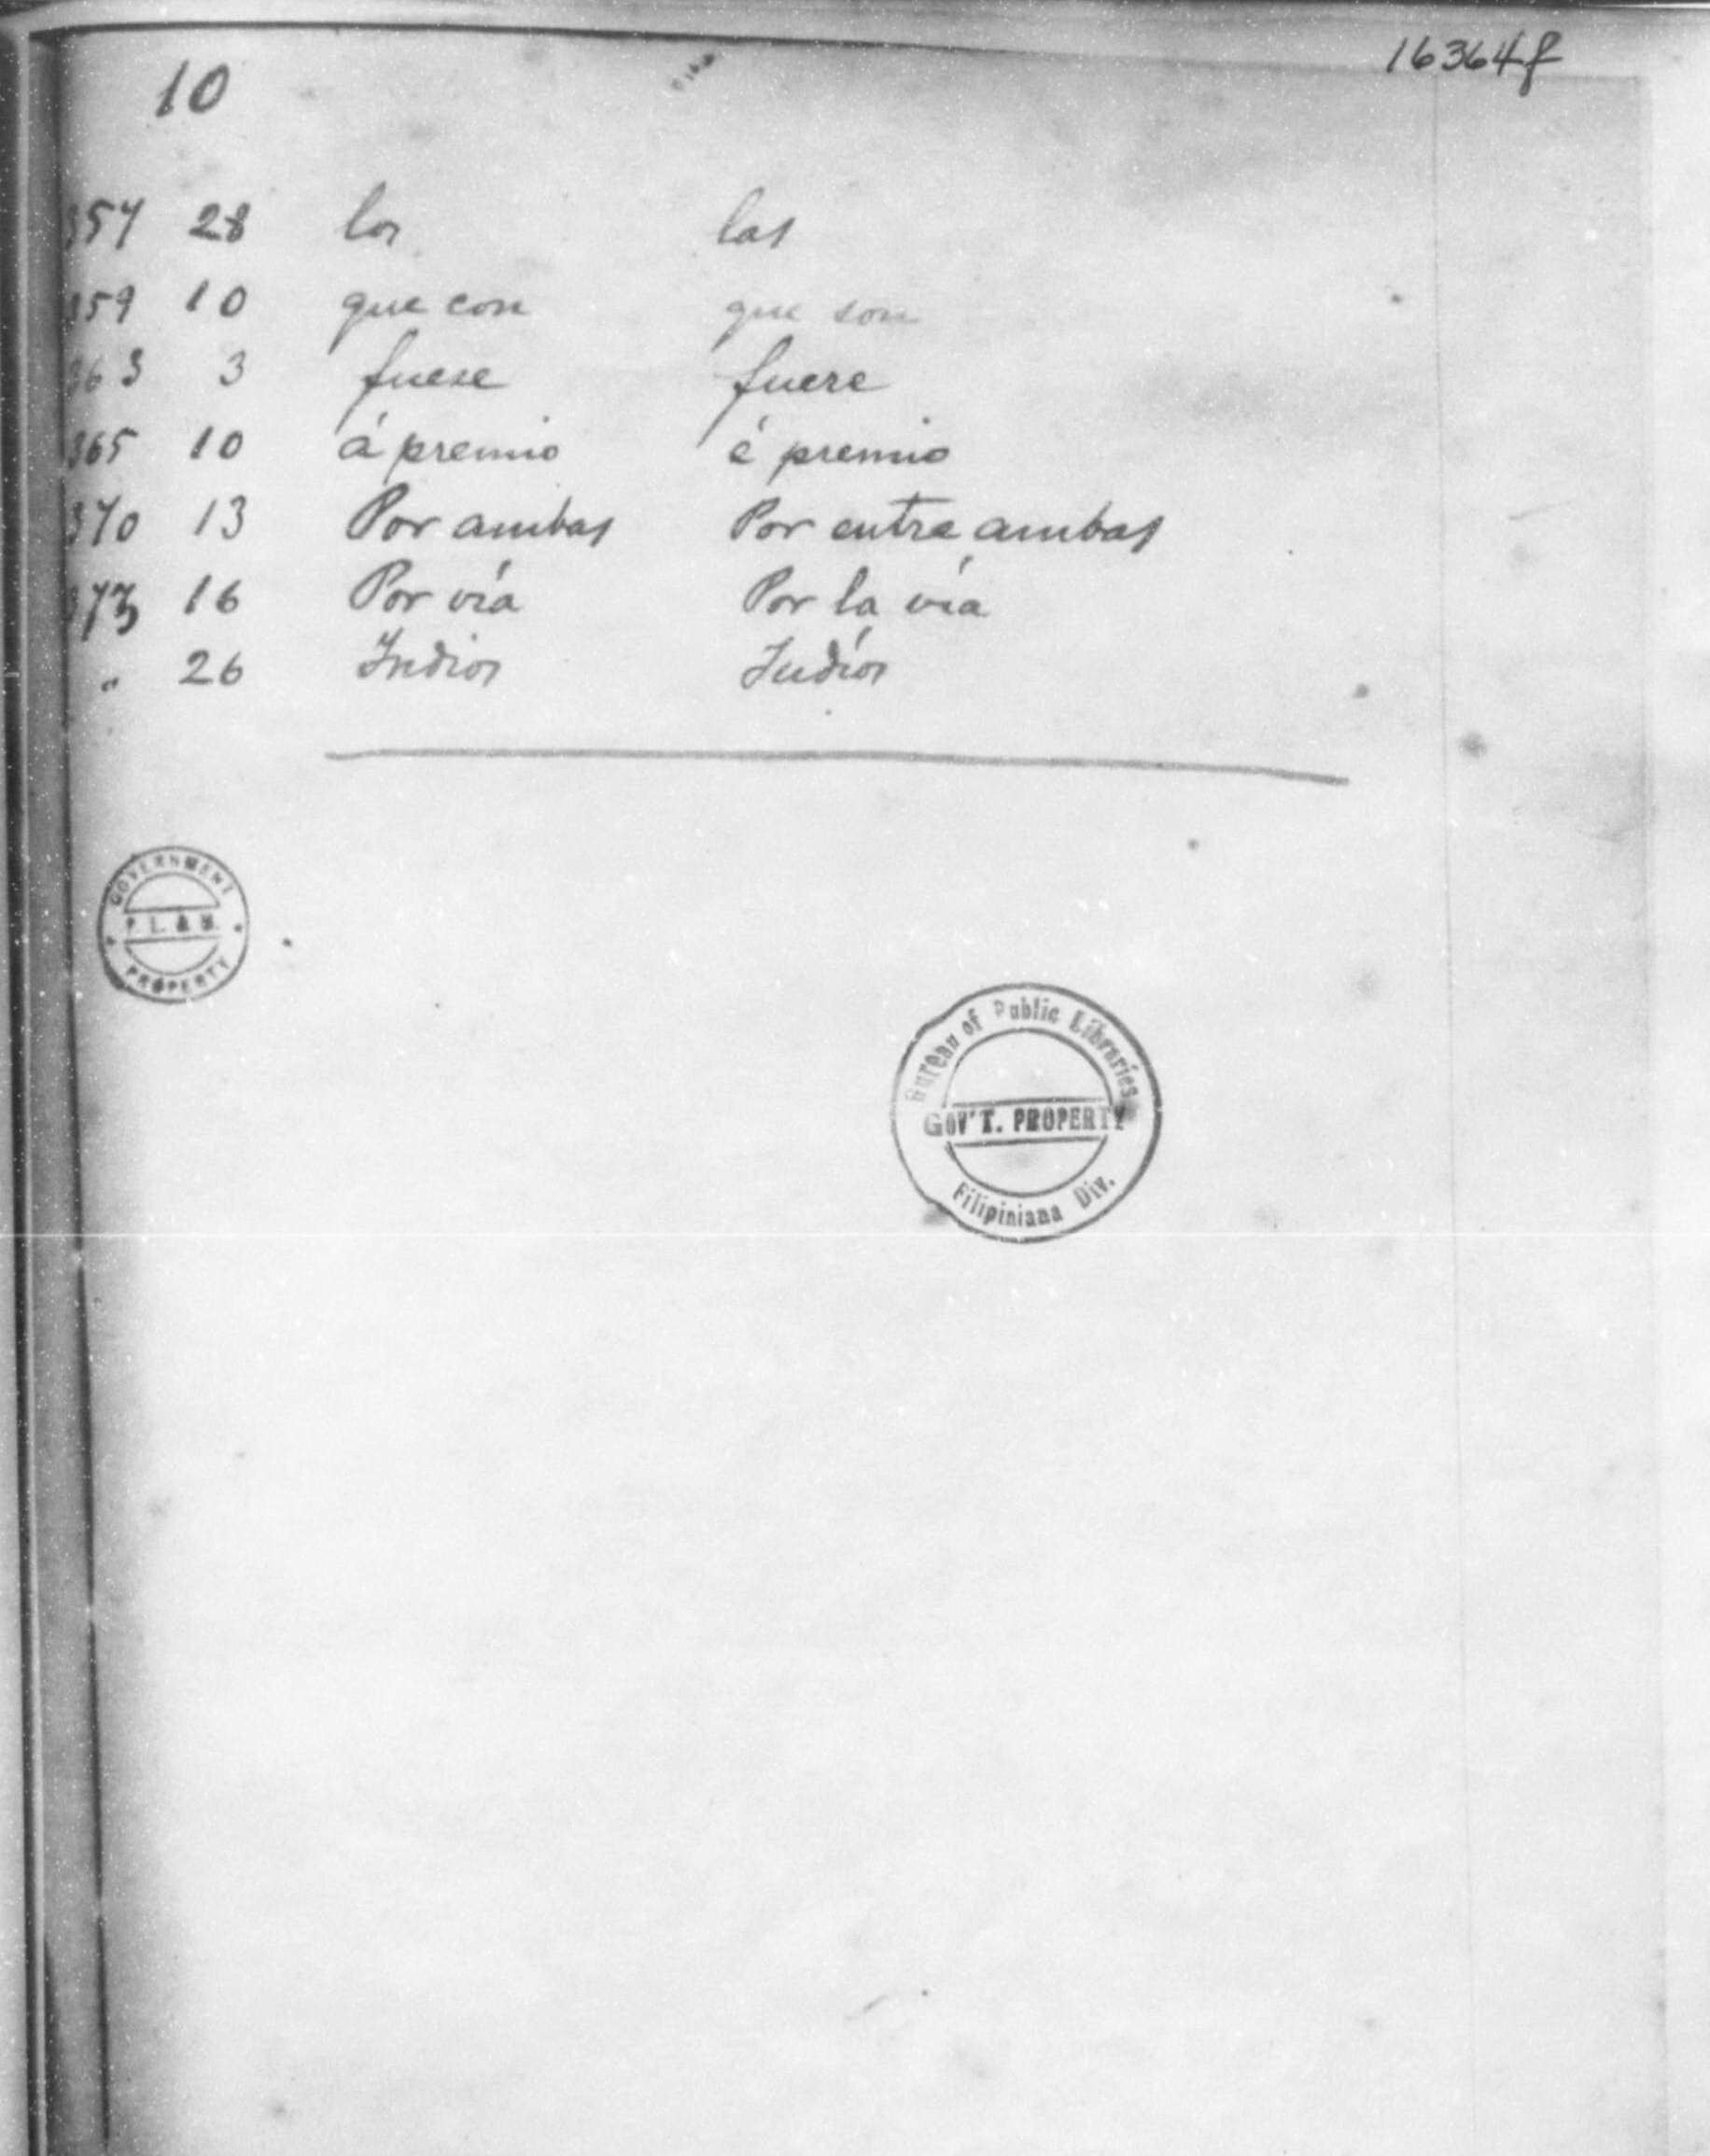 16364f
10
357 28 los las
359 10 que con que son
363 3 fuese fuere
365 10 á premio é premio
370 13 Por ambas Por entre ambas
373 16 Por vía Por la vía
" 26 Indios Judíos
GOVERNMENT
P. L. & M.
PROPERTY
Bureau of Public Libraries
GOV'T. PROPERTY
Filipiniana Div.